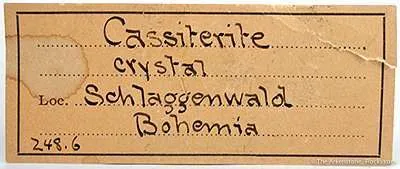 Cassiterite
crystal
Loc. Schlaggenwald
Bohemia
248.6
The Arkenstone, iRocks.com